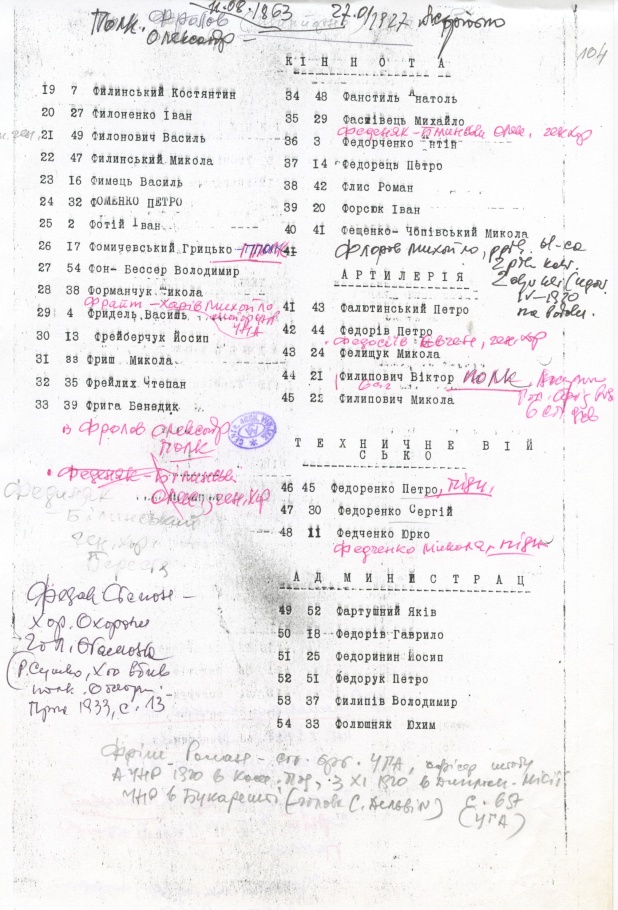 11.08.1863
Полк. Фролов
Олександр –
104
19 7 Филинський Костянтин
20 27 Филоненко Іван
21 49 Филонович Василь
22 47 Филинський Микола
23 16 Фимець Василь
24 32 ФОМЕНКО ПЕТРО
25 2 Фотій Іван
26 17 Фомичевський Грицько – ППОЛК
27 54 Фон- Бессер Володимир
28 38 Форманчук Микола
Франт – Харів Михойло
УГА
29 4 Фридель Василь
30 13 Фрейберчук Йосип
31 33 Фриш Микола
32 35 Фрейлих Степан
33 39 Фрига Бенедик
Фролов Олександр
ПОЛК
Феденяк – Білинський
Олекс, ген. хор
Фединяк
Білинський
ген. хор
Фезан Степан –
Хор. Охорони
Гол. Отамана
(Р. Сушко, Хто вбив
полк. Отмар
Прага 1933, с. 13
К І Н Н О Т А
34 48 Фанстиль Анатоль
35 29 Фасмівець Михайло
Феденяк – Білинський Олек, ген. хор
36 3 Федорченко Антін
37 14 Федорець Петро
38 42 Флис Роман
39 20 Форсюк Іван
40 41 Фещенко- Чопівський Микола
41
Флоров Михойло,
IV – 1920
А Р Т И Л Е Р І Я
41 43 Фалютинський Петро
42 44 Федорів Петро
Федосіїв Євген, ген. хор
43 24 Фелищук Микола
44 21 Филипович Віктор ПОЛК
45 22 Филипович Микола
Т Е Х Н И Ч Н Е В І Й
С Ь К О
46 45 Федоренко Петро, підп,
47 30 Федоренко Сергій
48 11 Федченко Юрко
Федченко Микола, підп
А Д М И Н И С Т Р А Ц
49 52 Фартушний Яків
50 18 Федорів Гаврило
51 25 Федоринин Йосип
52 51 Федорук Петро
53 37 Филипів Володимир
54 33 Фолюшняк Юхим
Фріш Роман – УГА, штабу
А УНР 1920 в Кам. Под, з XI 1920 в місії
УНР в Букарешті (голова С. Дельвіг) С. 657
(УГА)